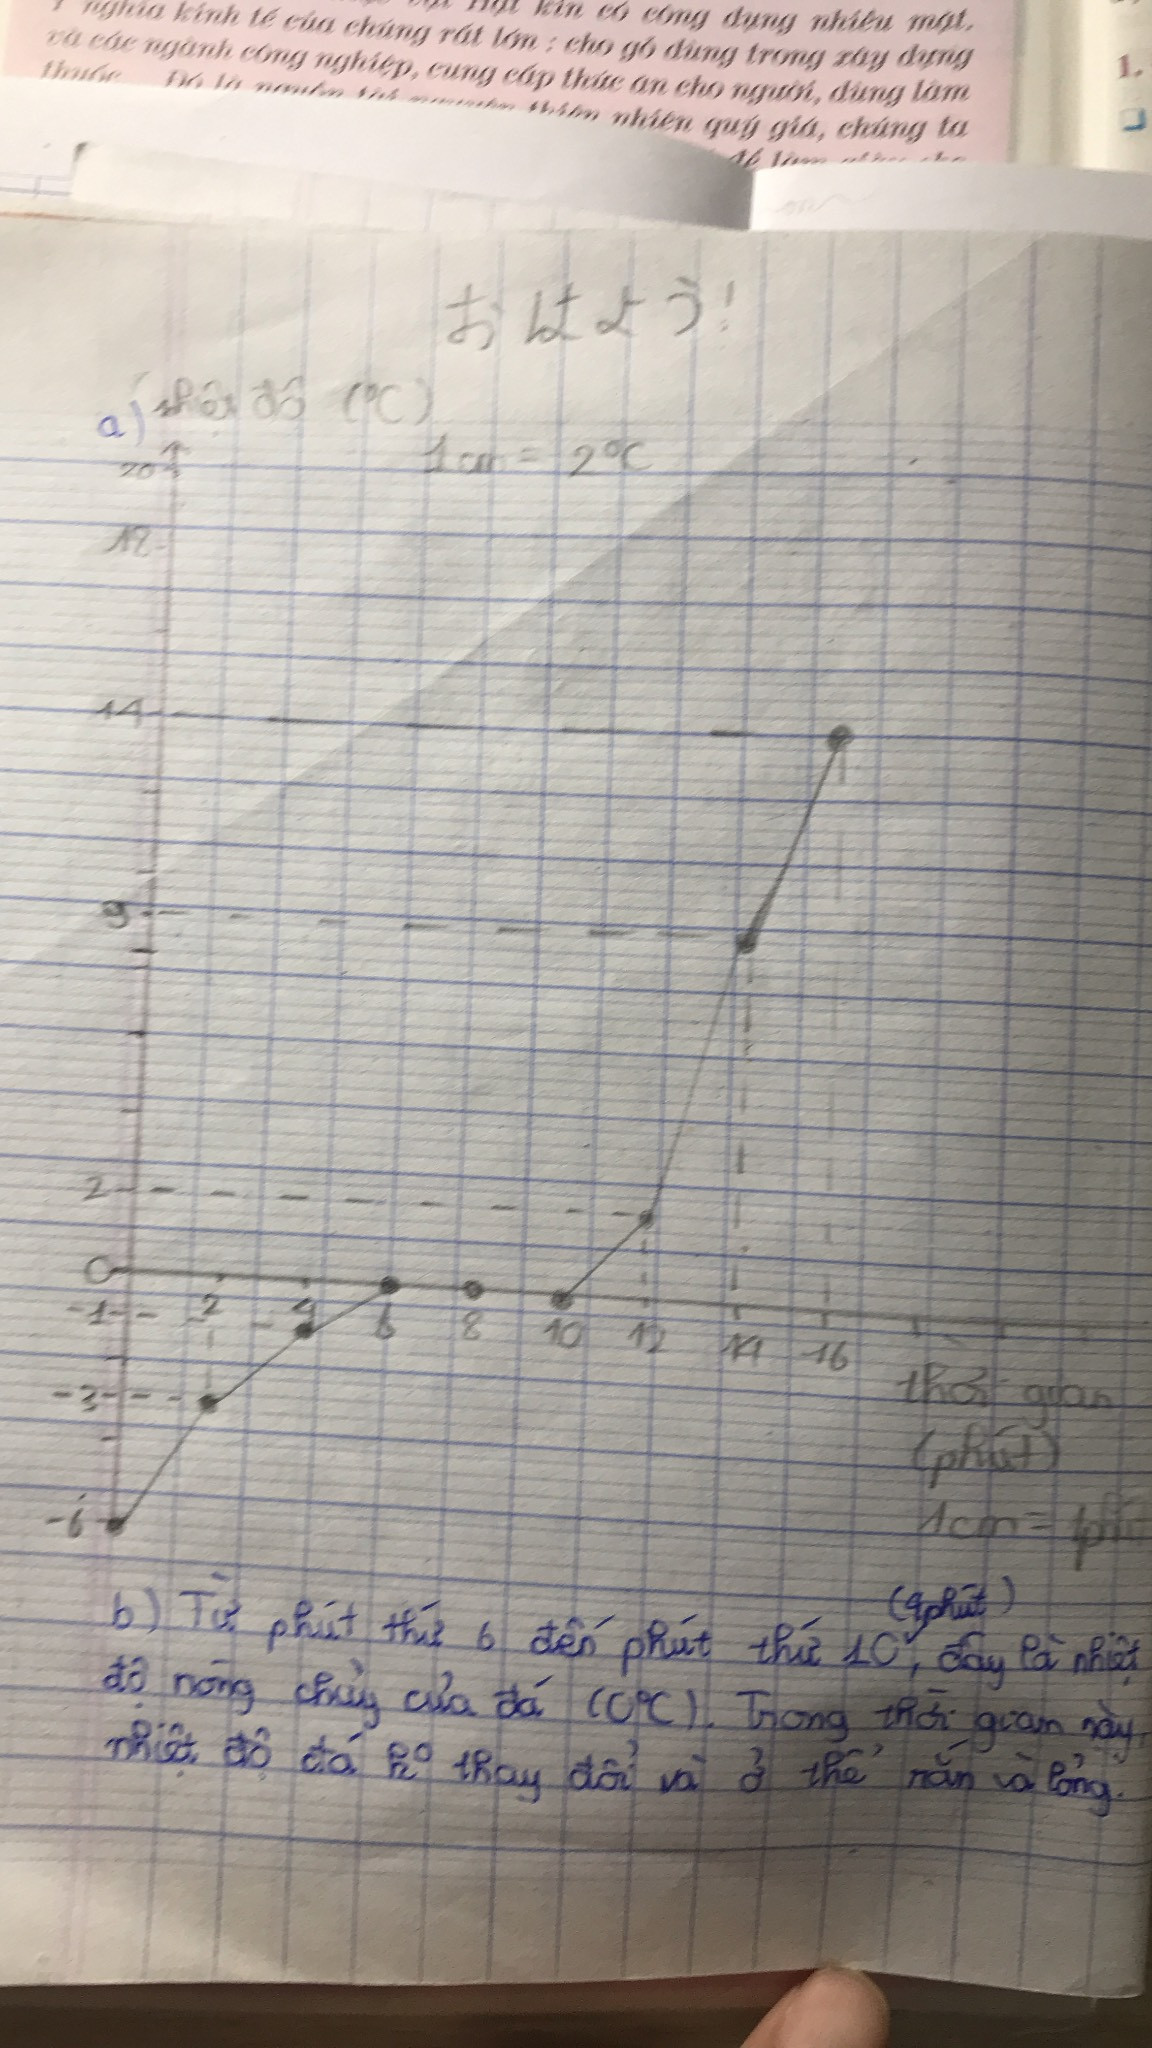 nghĩa kinh tế của chúng rất lớn : cho gỗ dùng trong xây dựng
và các ngành công nghiệp, cung cấp thức ăn cho người, dùng làm
nhiên quý giá, chúng ta
1.
おはよう!
a) nhiệt độ (°C)
1cm = 2°C
20
18
14
9
2
0
-1
2
4
6
8
10
12
14
16
-3
thời gian
(phút)
-6
1cm =
(4phút)
b) Từ phút thứ 6 đến phút thứ 10, đây là nhiệt
độ nóng chảy của đá (0°C). Trong thời gian này,
nhiệt độ đá k° thay đổi và ở thể rắn và lỏng.